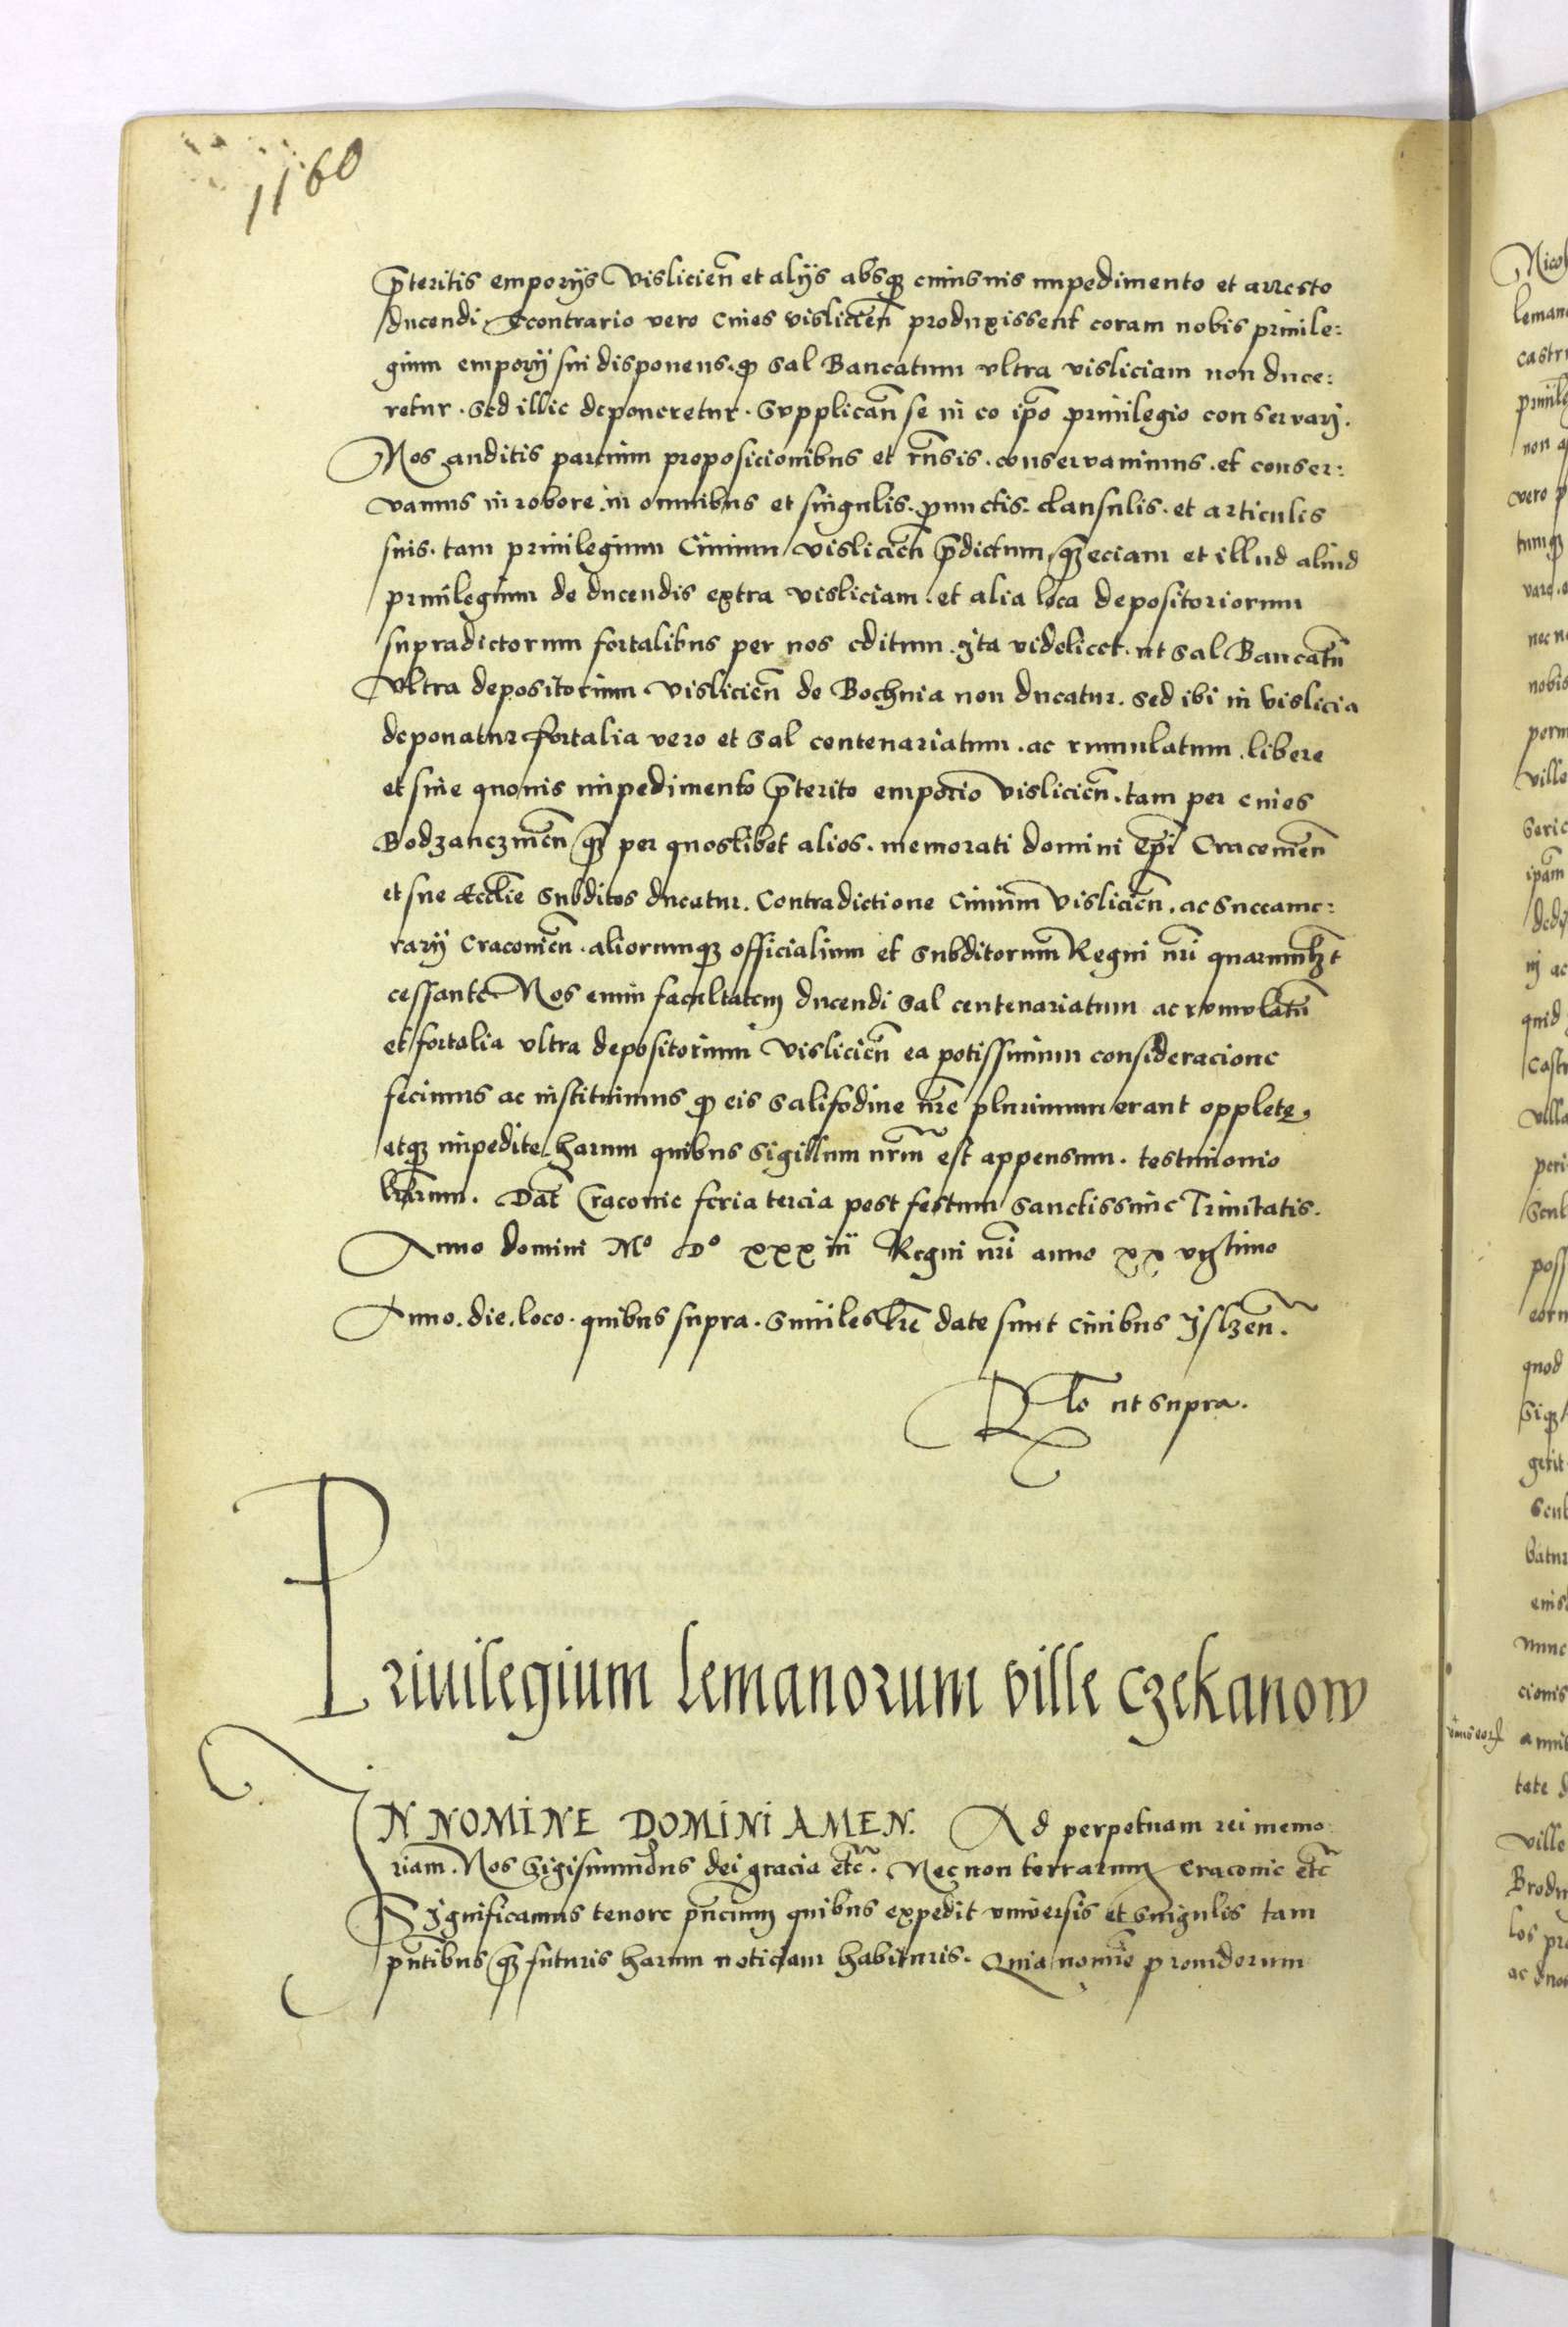 1160
p̄teritis emporijs Visliciēn et alijs absq̢ cuiusuis impedimento et arresto
ducendi Econtrario vero Ciues visliciēn produxissent coram nobis priuile:
gium emporij sui disponens. ꝙ sal Bancatum vltra visliciam non duce:
retur. Sed illic deponeretur. Supplicān se in eo ip̄o priuilegio conservarj.
Nos auditis parcium proposicionibus et rn̄sis. conservauimus. et conser:
vamus in robore. in omnibus et singulis. punctis. clausulis. et articulis
suis. tam priuilegium Ciuium visliciēn p̄dictum q̄ȝ eciam et illud aliud
priuilegium de ducendis extra visliciam. et alia loca depositoriorum
supradictorum fortalibus per nos editum. Ita videlicet. ut sal Bancatū
Vltra depositorium Visliciēn de Bochnia non ducatur. Sed ibi in vislicia
deponatur fortalia vero et sal centenariatum. ac rumulatum. libere
et sine quouis impedimento p̄terito emporio Visliciēn. tam per ciues
Bodzanczinēn q̄ȝ per quoslibet alios. memorati domini Ep̄i Cracouiēn
et sue Eccl̄ie subditos ducatur. Contradictione Ciuium Visliciēn. ac succame:
rarij Cracouiēn. aliorumq̢ officialium et subditorum Regni nr̄i quarumlȝt
cessante Nos enim facultatem ducendi sal centenariatum ac rumulatū
et fortalia vltra depositorium Visliciēn ea potissimum consideracione
fecimus ac instituimus ꝙ eis salifodine nr̄e plurimum erant opplete,
atq̢ impedite harum quibus sigillum nr̄m est appensum. testimonio
lr̄arum. Dat̄ Cracouie feria tercia post festum sanctissime Trinitatis.
Anno domini Mº Dº xxx iii Regni nr̄i anno xx vigtimo
Anno. die. loco. quibus supra. Similes lr̄e date sunt ciuibus Jslzēn.
R̄lo ut supra.
Priuilegium lemanorum ville czekanow
IN NOMINE DOMINI AMEN. Ad perpetuam rei memo
riam. Nos Sigismundus dei gracia etc̄. Nec non terrarum Cracouie etc̄
Significamus tenore pn̄cium quibus expedit vniversis et singulis tam
pn̄tibus q̄ȝ futuris harum noticiam habituris. Quia nomīe prouidorum